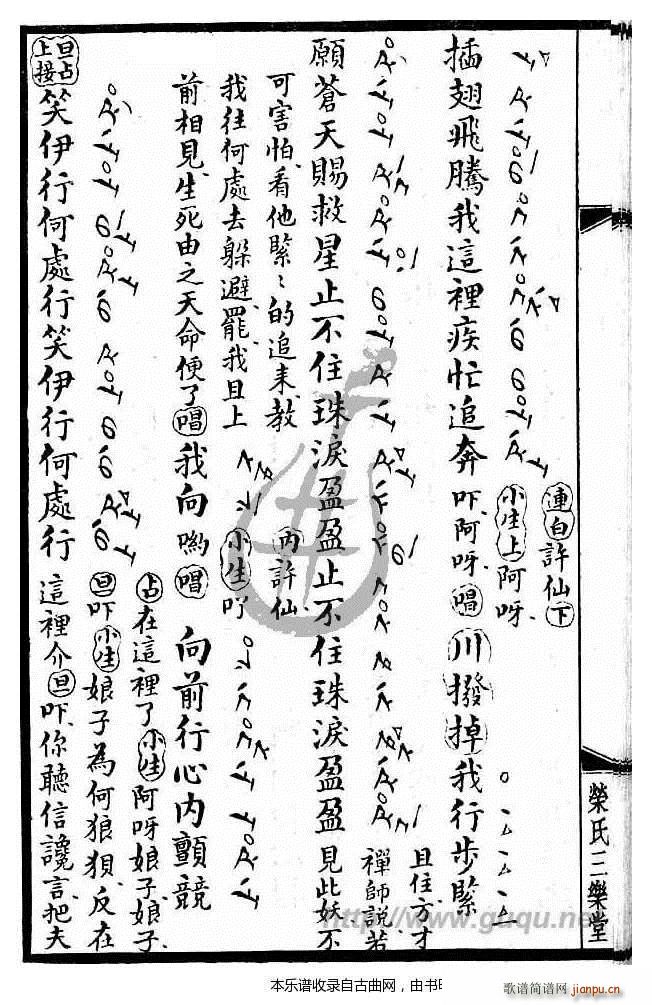 插翅飛騰我這裡疾忙追奔吓阿呀唱川撥掉我行步緊
連白許仙下
小生上阿呀
且住方才
禪師說若
願蒼天賜救星止不住珠淚盈盈止不住珠淚盈盈見此妖不
可害怕看他緊〻的追来教
丙許仙
我往何處去躲避罷我且上
小生吖
前相見生死由之天命便了唱我向喲唱向前行心内顫競
占在這裡了小生阿呀娘子娘子
旦占上接
旦吓小生娘子為何狼狽反在
笑伊行何處行笑伊行何處行這裡介旦吓你聽信讒言把夫
榮氏三樂堂
http://www.guqu.net
本乐谱收录自古曲网，由书
歌谱简谱网
jianpu.cn